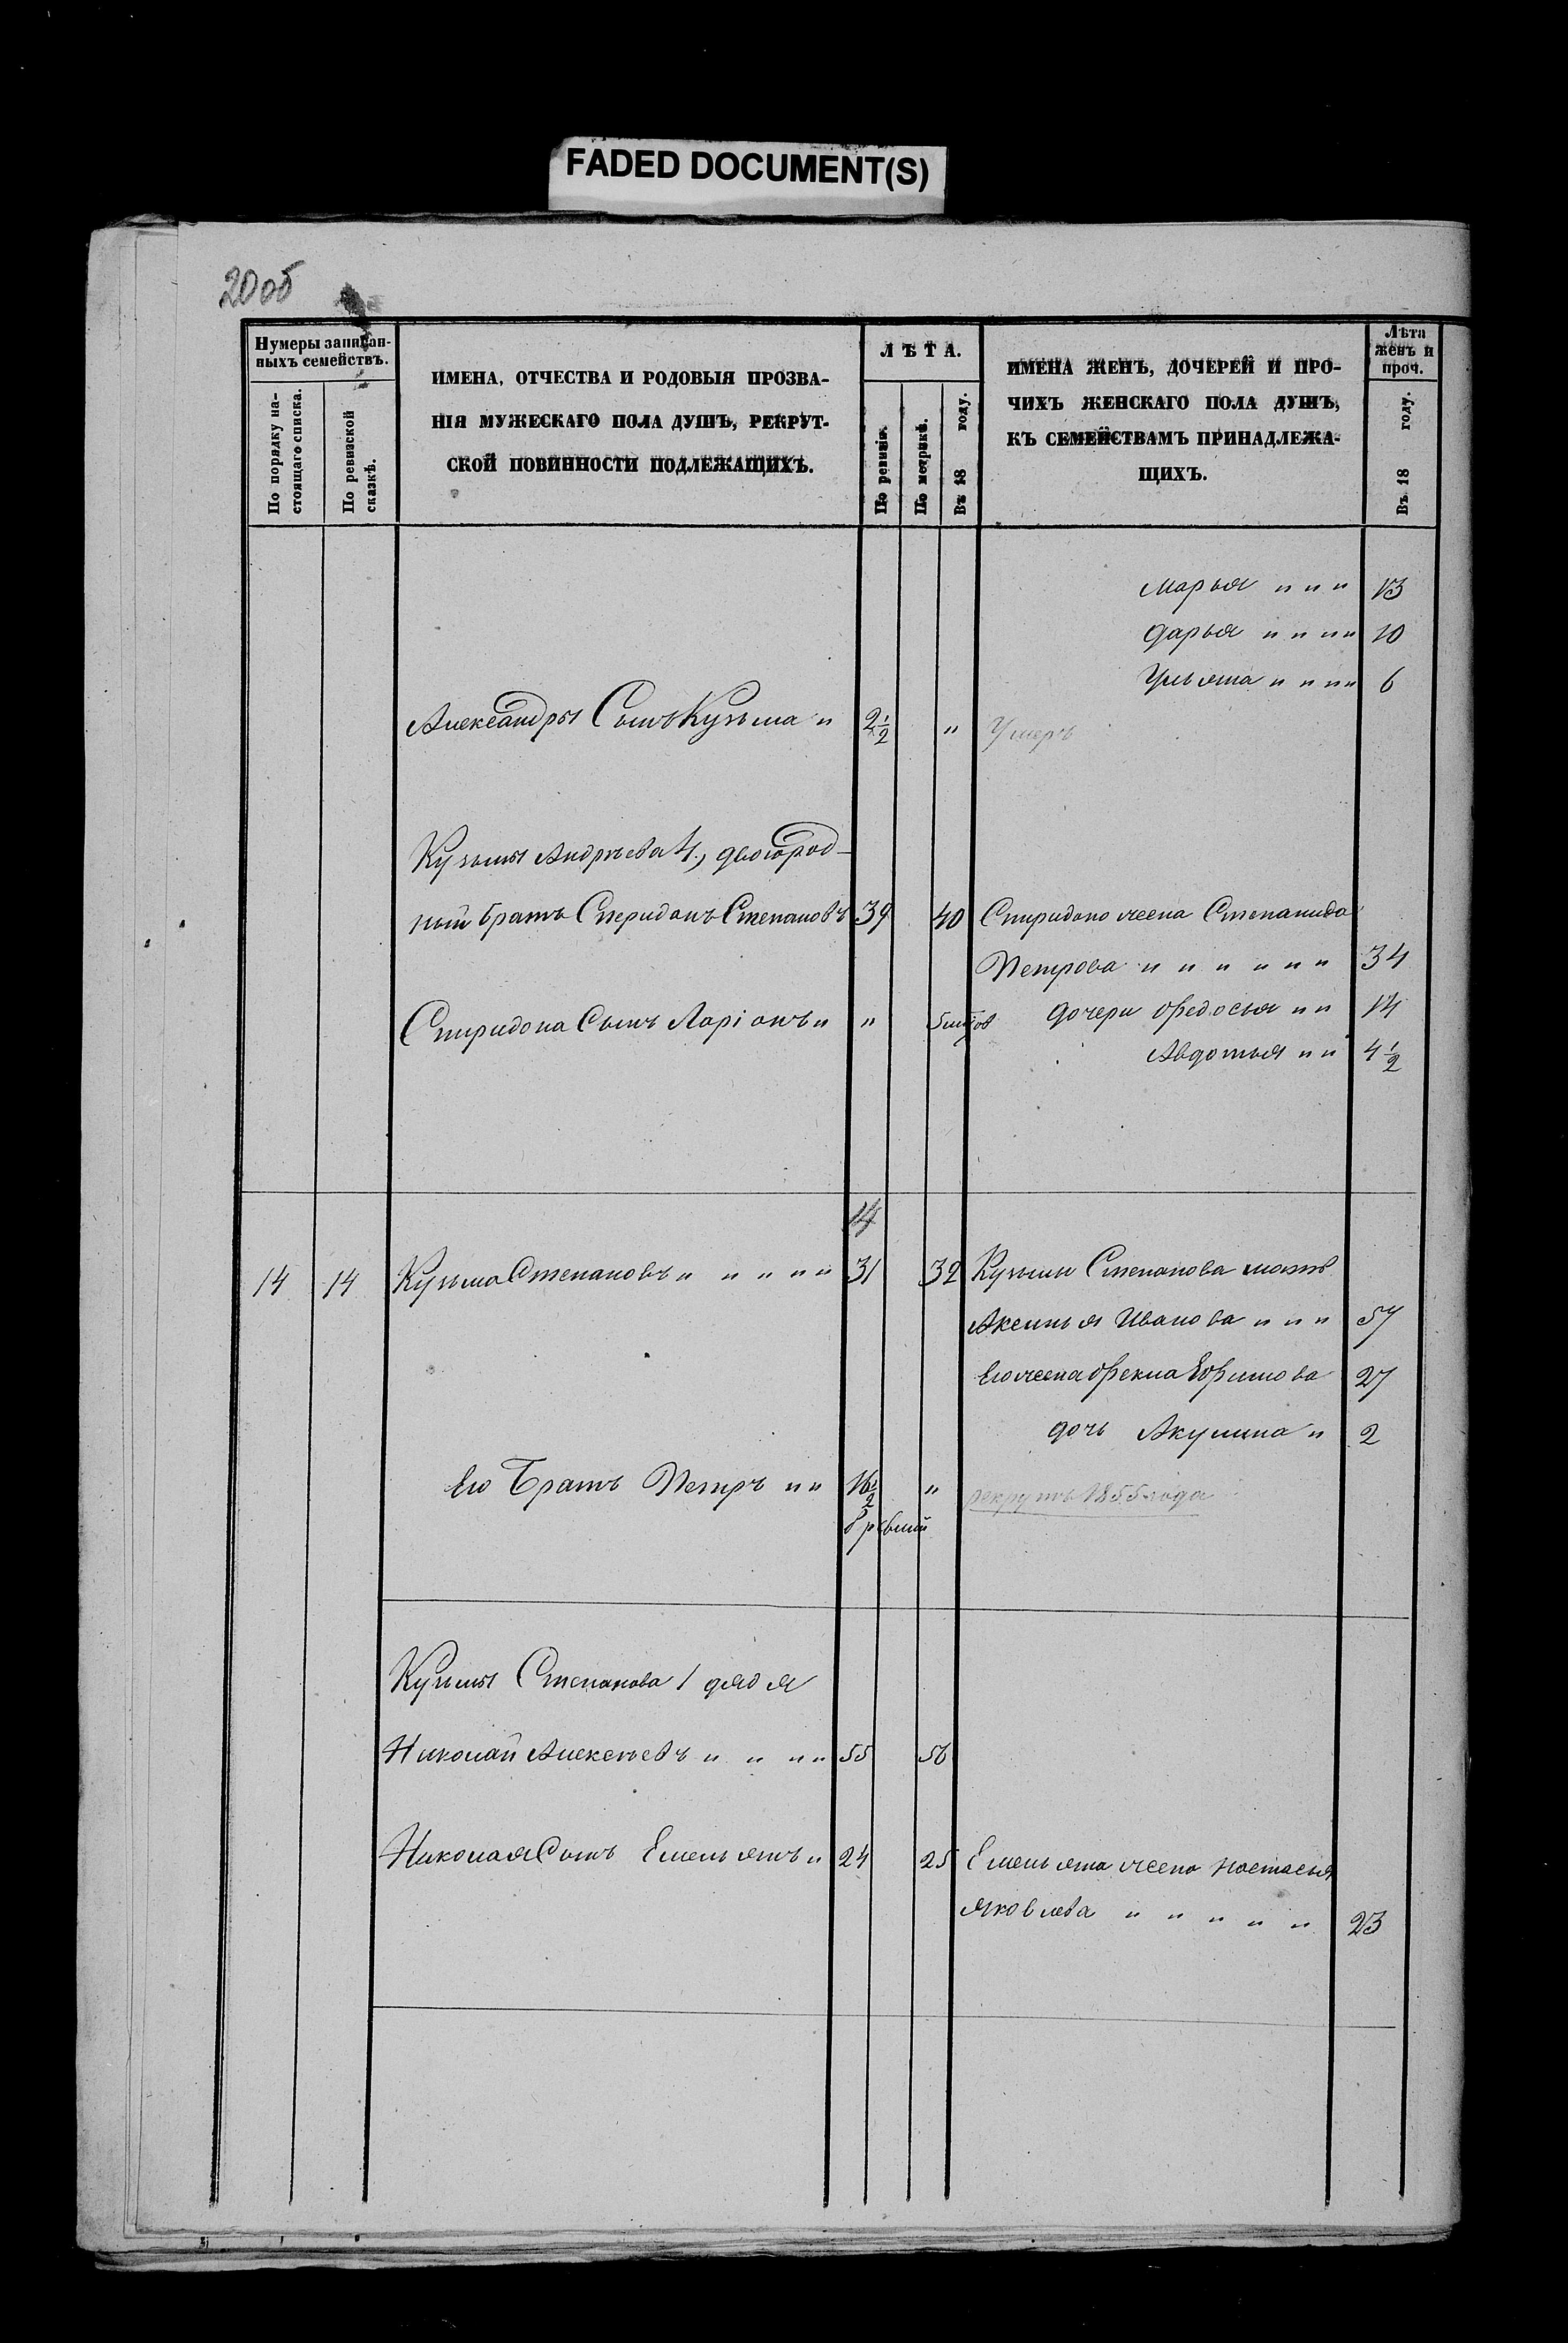 FADED DOCUMENT(S)
20об
Нумеры записан-
ныхъ семействъ.
По порядку на-
стоящаго списка.
По ревизской
сказкѣ.
ИМЕНА, ОТЧЕСТВА И РОДОВЫЯ ПРОЗВА-
НІЯ МУЖЕСКАГО ПОЛА ДУШЪ, РЕКРУТ-
СКОЙ ПОВИННОСТИ ПОДЛЕЖАЩИХЪ.
ЛѢТА.
По ревизіи.
По метрикѣ.
Въ 18 году.
ИМЕНА ЖЕНЪ, ДОЧЕРЕЙ И ПРО-
ЧИХЪ ЖЕНСКАГО ПОЛА ДУШЪ,
КЪ СЕМЕЙСТВАМЪ ПРИНАДЛЕЖА-
ЩИХЪ.
Лѣта
женъ и
проч.
Въ 18 году.
Марья " " " 13
Дарья " " " " 10
Ульяна " " " " 6
Александры Сынъ Кузьма " 2 1/2 " Умеръ
Кузьмы Андрѣева 4, двоюрод-
ный братъ Спиридонъ Степановъ 39 40 Спиридона жена Степанида
Петрова " " " " " " 34
Спиридона Сынъ Ларіонъ " " дочери Ѳедосья " " 14
Авдотья " " 4 1/2
14
14 14 Кузьма Степановъ " " " " " 31 32 Кузьмы Степанова мать
Аксинья Иванова " " " 57
Его жена Ѳекла Ефимова 27
дочь Акулина " 2
Его Братъ Петръ " " 16 1/2 " рекрутъ 1855 года
Кузьмы Степанова 1 дядя
Николай Алексѣевъ " " " " 55 56
Николая Сынъ Емельянъ " 24 25 Емельяна жена Настасья
Яковлева " " " " " 23